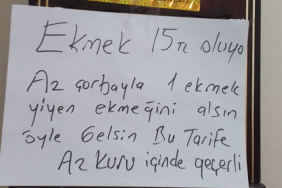 Ekmek 15 TL oluyo
Az çorbayla 1 ekmek
yiyen ekmeğini alsın
öyle Gelsin Bu Tarife
Az Kuru içinde geçerli